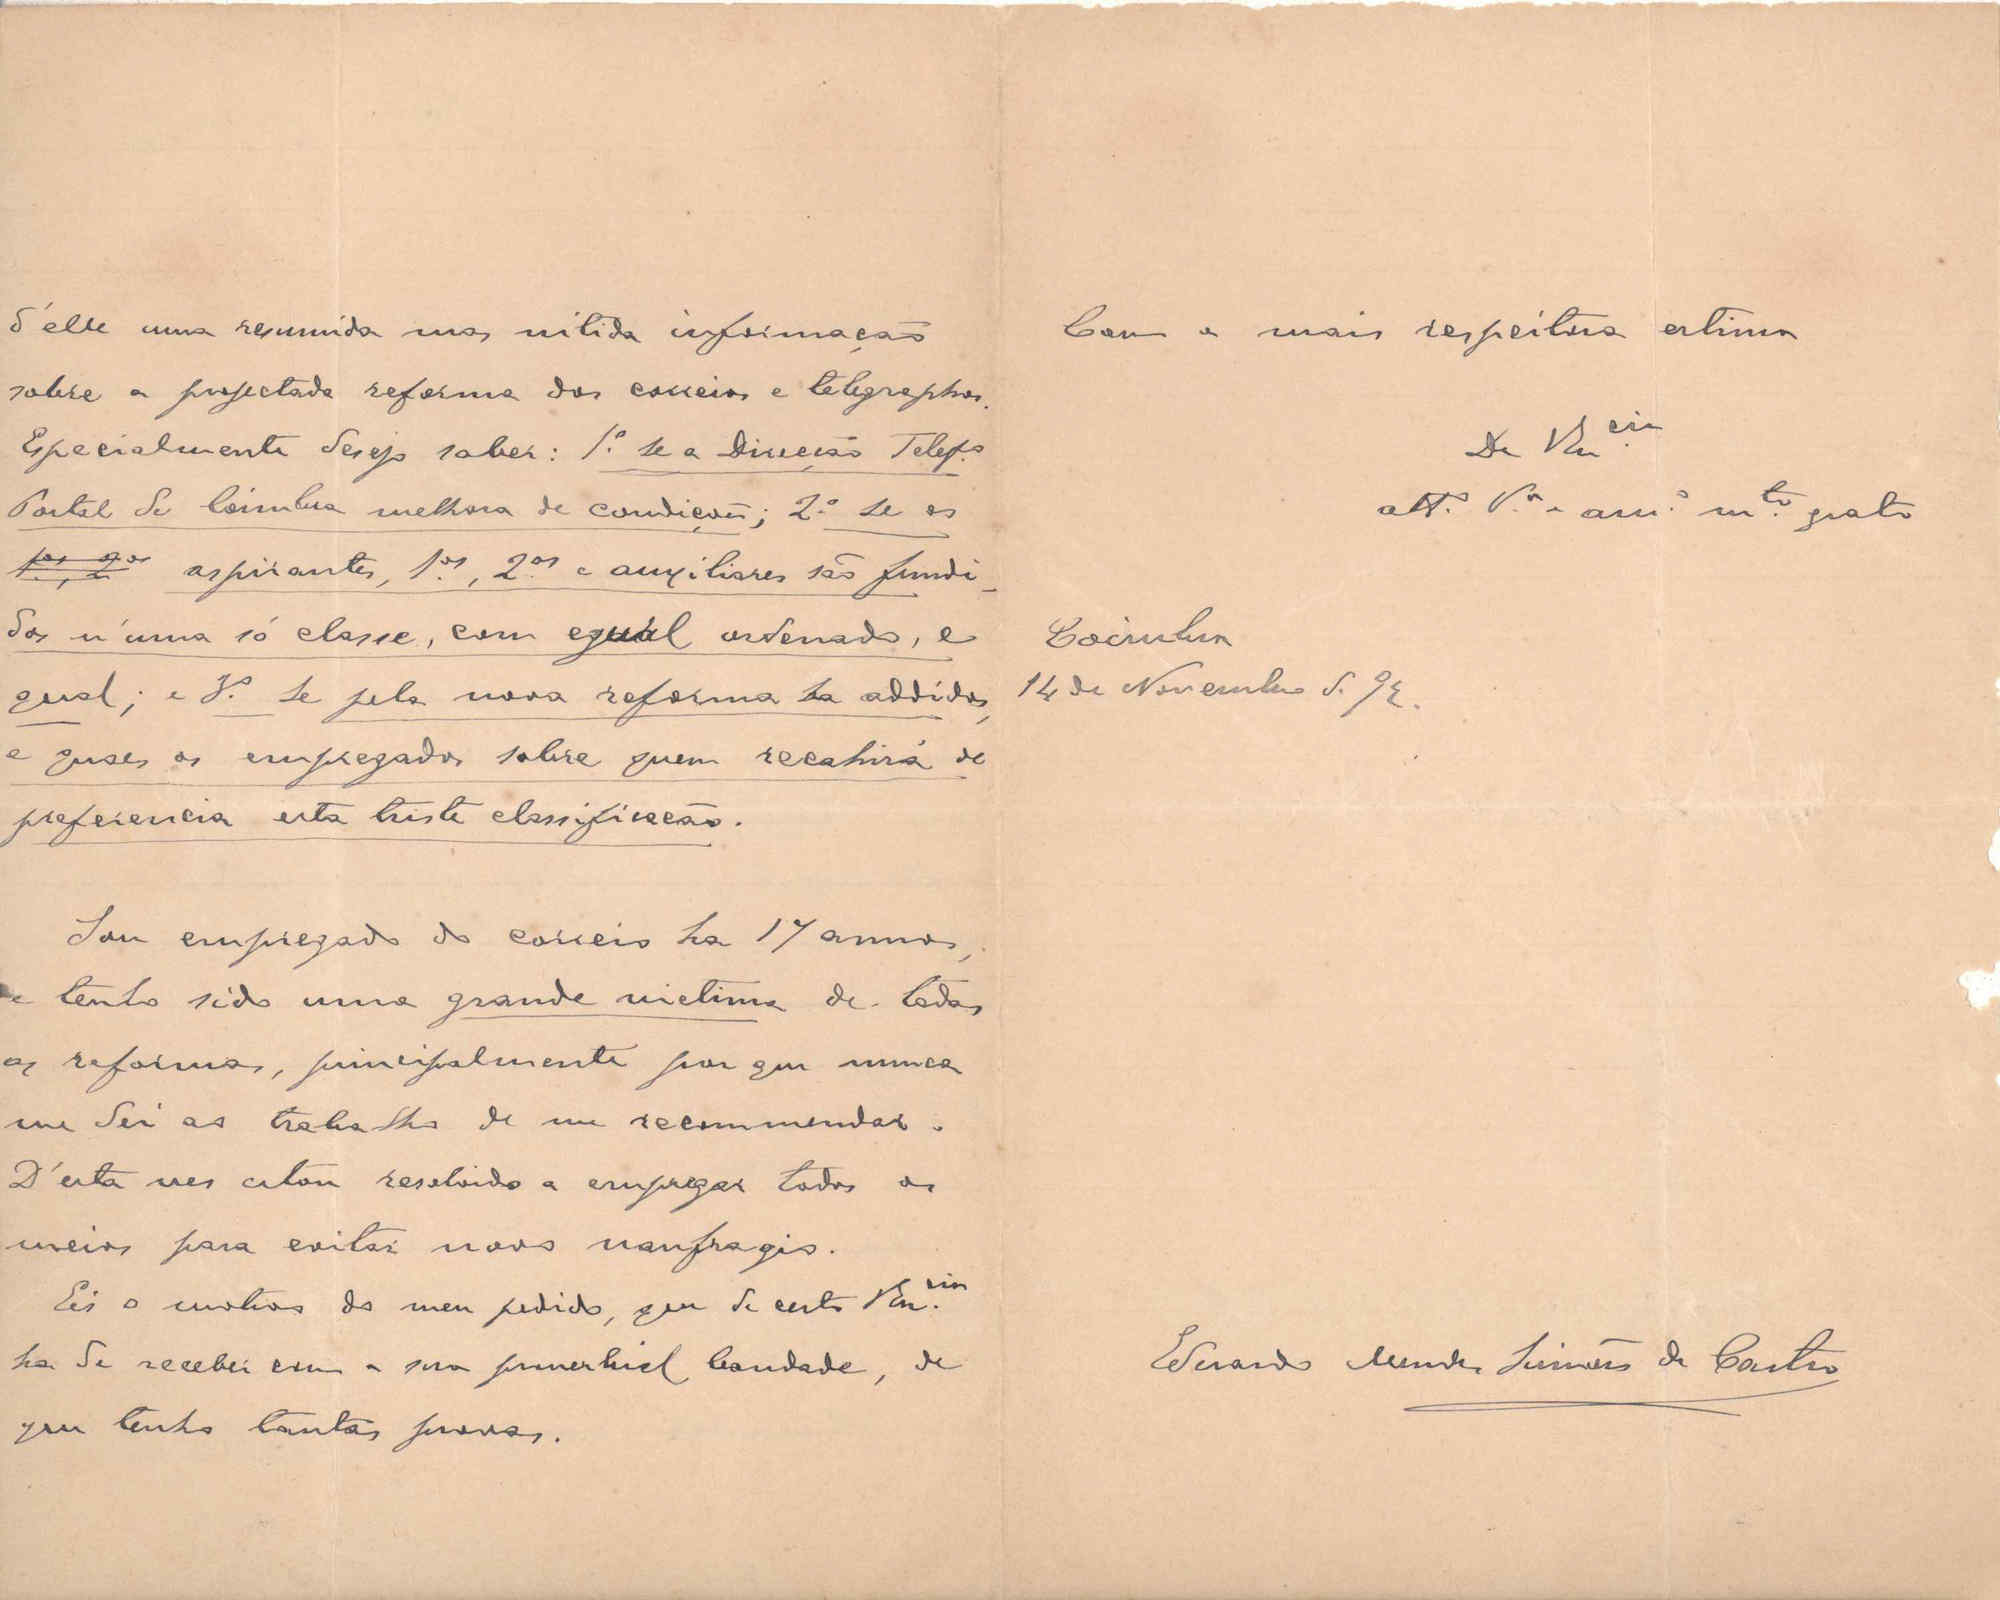 d'elle uma resumida mas nitida informação
sobre a projectada reforma dos correios e telegraphos.
Especialmente desejo saber: 1.º se a Direcção Telegº
Postal de Coimbra melhora de condições; 2.º se os
1.os, 2.os aspirantes, 1.os, 2.os e auxiliares são fundi-
dos n'uma só classe, com egual ordenado, e
gual; e 3.º se pela nova reforma ha addidos,
e quaes os empregados sobre quem recahirá de
preferencia esta triste classificação.
Sou empregado do correio ha 17 annos,
e tenho sido uma grande victima de todas
as reformas, principalmente por que nunca
me dei ao trabalho de me recommendar.
D'esta vez estou resolvido a empregar todos os
meios para evitar novo naufragio.
Eis o motivo do meu pedido, que de certo V.Ex.cia
ha de receber com a sua proverbial bondade, de
que tenho tantas provas.
Com a mais respeitosa estima
De V.Ex.cia
att.º V.or e am.º m.to grato
Coimbra
14 de Novembro de 92.
Eduardo Mendes Simões de Castro